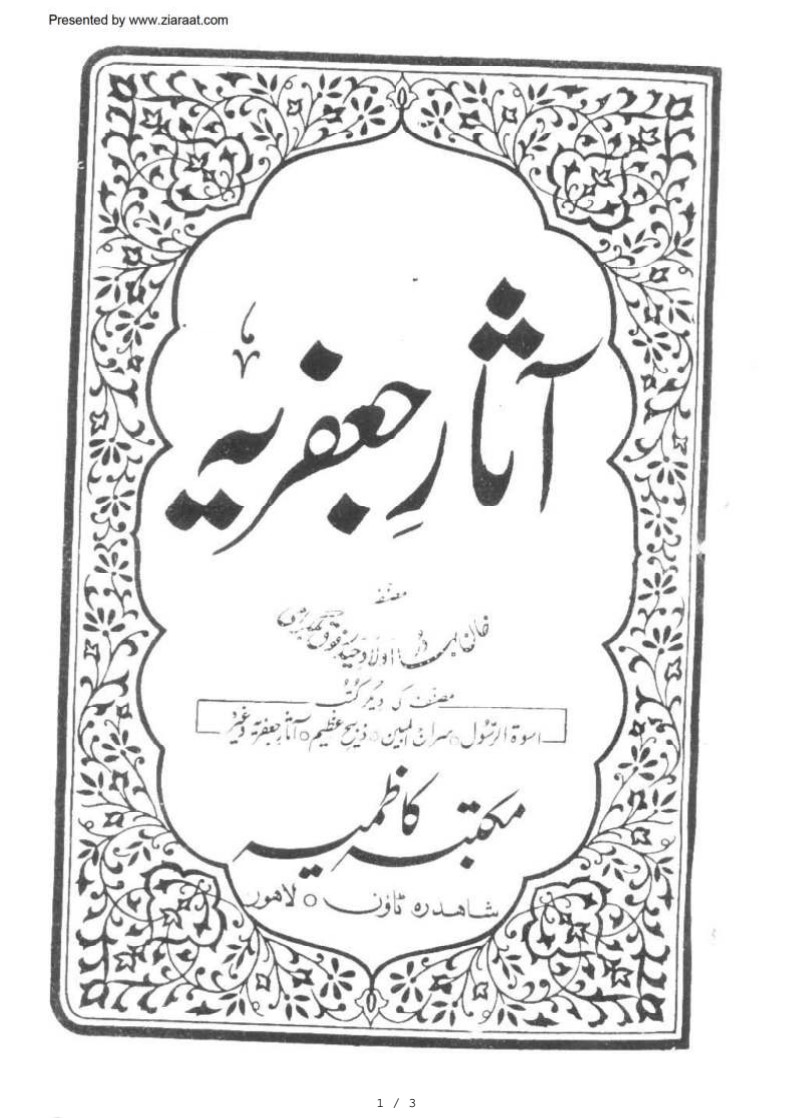 Presented by www.ziaraat.com
آثارِ جعفریہ
مصنفہ
خان بہادر اولاد حیدر فوق بلگرامی
مصنف کی دیگر کتب
اسوۃ الرسول ○ سراج المبین ○ ذبح عظیم ○ آثار جعفریہ وغیرہ
مکتبہ کاظمیہ
شاهدرہ ٹاؤن ○ لاهور
1 / 3